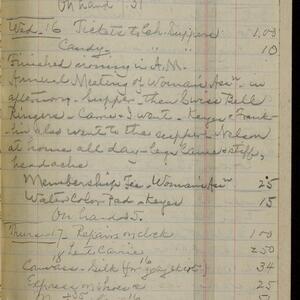 On hand .31
Wed. 16 Tickets to Ch. Suppers 1.00
Candy " " 10
Finished ironing in A.M.
Annual Meeting of Woman's Ass'n in
afternoon - supper - then Swiss Bell
Ringers - Carrie & I went - Keyes &
in also went to the supper - Nelson
at home all day - legs lame & stiff,
headache
Membership Fee - Woman's Ass'n 25
Water Color Pad - Keyes 15
On hand
Thurs. 17 - Repairs on clock 1.00
Carrie 2.50
Canvass - Silk for 34
Express on shoes 25
16